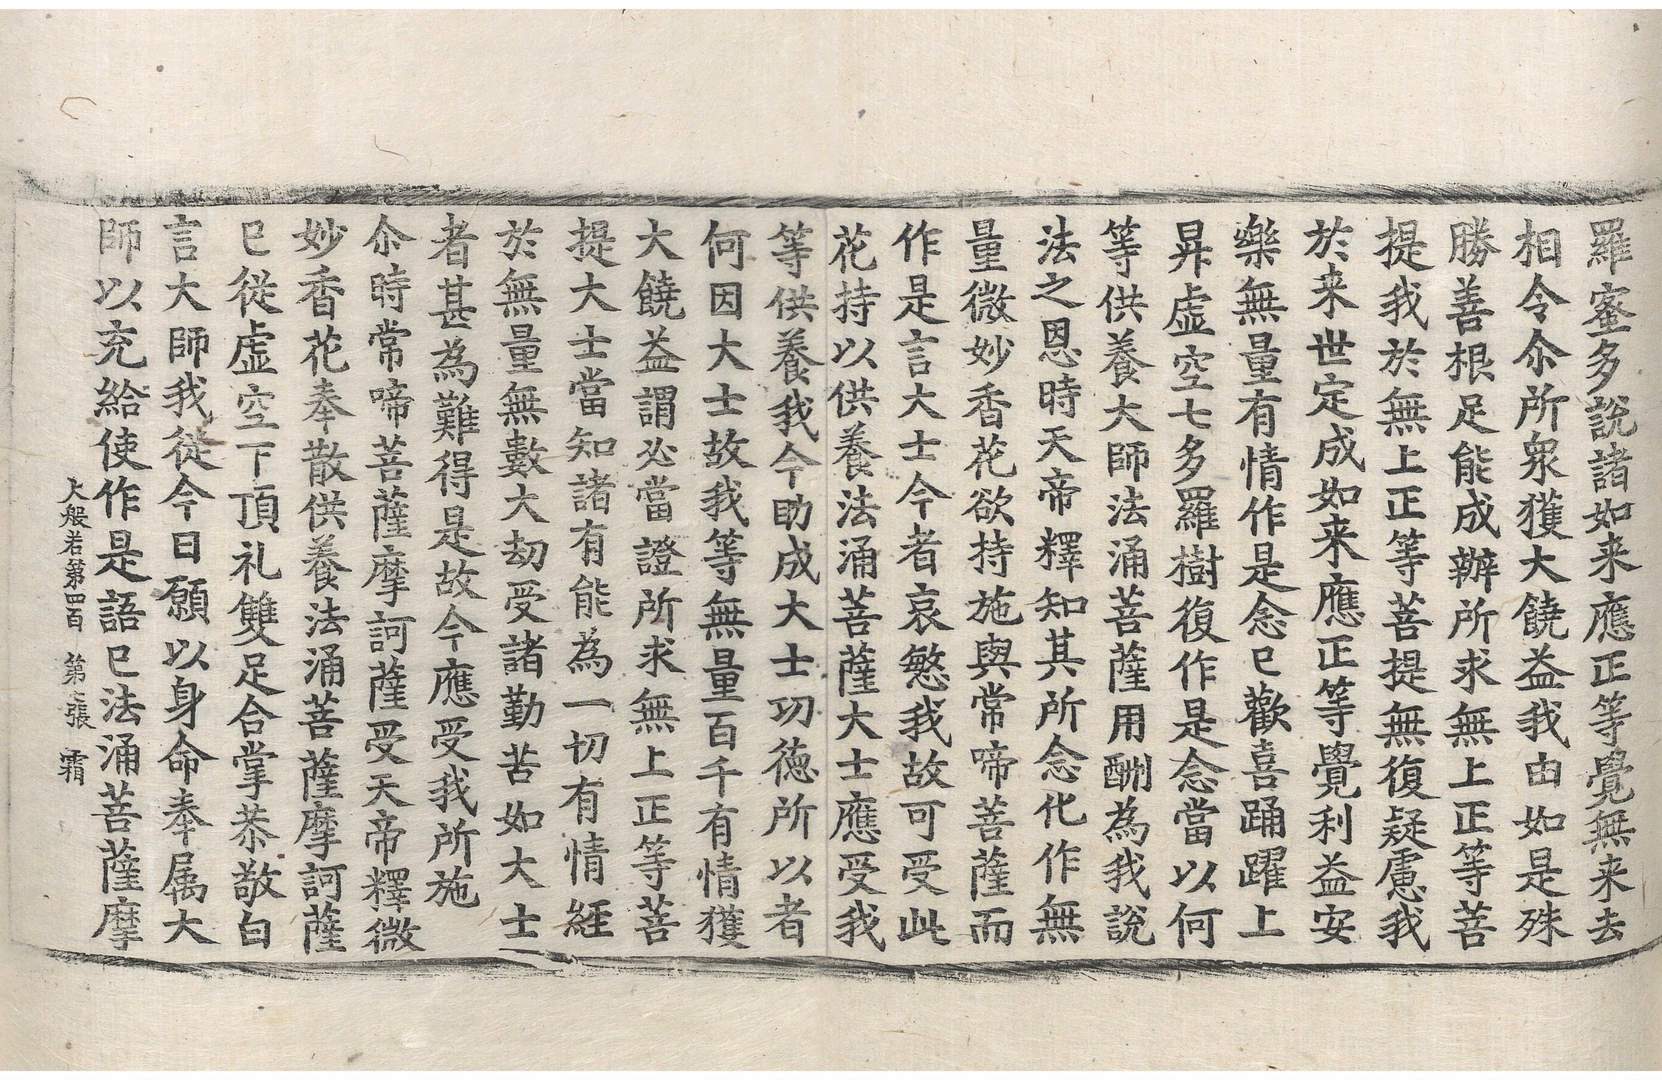 羅蜜多說諸如来應正等覺無来去
相令尒所衆獲大饒益我由如是殊
勝善根足能成辦所求無上正等菩
提我於無上正等菩提無復疑慮我
於来世定成如来應正等覺利益安
樂無量有情作是念已歡喜踊躍上
昇虛空七多羅樹復作是念當以何
等供養大師法涌菩薩用酬為我說
法之恩時天帝釋知其所念化作無
量微妙香花欲持施與常啼菩薩而
作是言大士今者哀愍我故可受此
花持以供養法涌菩薩大士應受我
等供養我今助成大士功德所以者
何因大士故我等無量百千有情獲
大饒益謂必當證所求無上正等菩
提大士當知諸有能為一切有情經
於無量無數大劫受諸勤苦如大士
者甚為難得是故今應受我所施
尒時常啼菩薩摩訶薩受天帝釋微
妙香花奉散供養法涌菩薩摩訶薩
已從虛空下頂礼雙足合掌恭敬白
言大師我從今日願以身命奉属大
師以充給使作是語已法涌菩薩摩
大般若第四百 第 張 霜